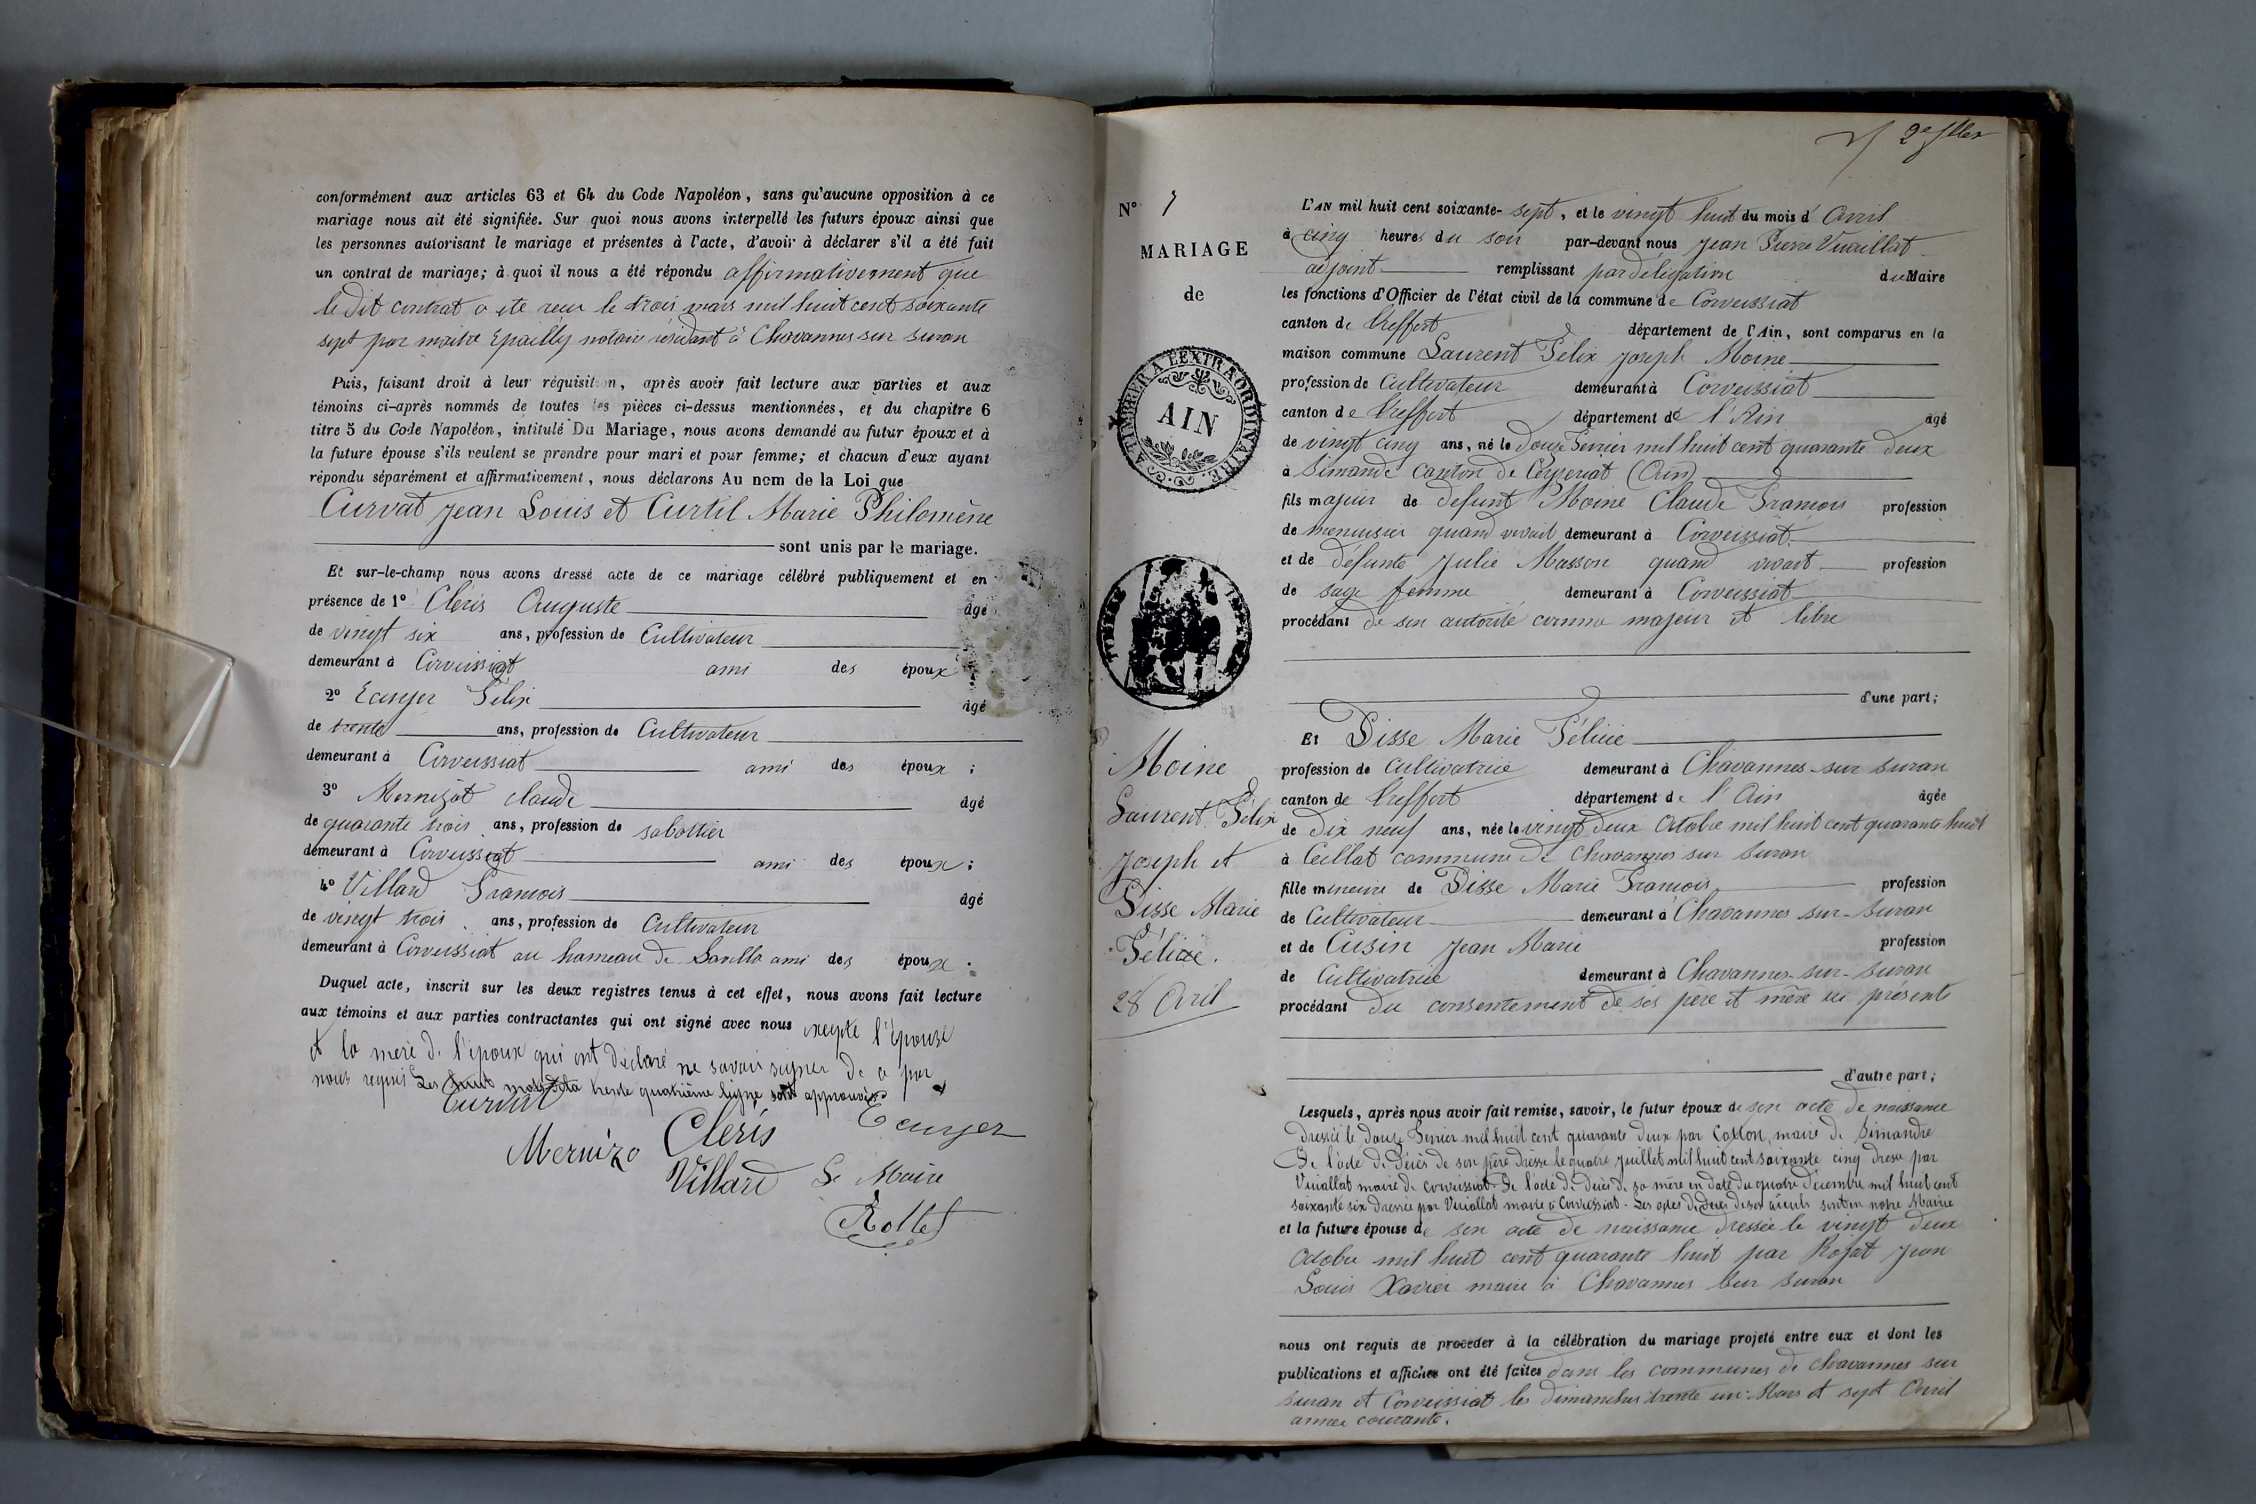 conformément aux articles 63 et 64 du Code Napoléon, sans qu'aucune opposition à ce
mariage nous ait été signifiée. Sur quoi nous avons interpellé les futurs époux ainsi que
les personnes autorisant le mariage et présentes à l'acte, d'avoir à déclarer s'il a été fait
un contrat de mariage; à quoi il nous a été répondu affirmativement que
le dit contrat a ete recu le trois mars mil huit cent soixante
sept par maitre Epailly notaire résidant à Chavannes sur suran
Puis, faisant droit à leur réquisition, après avoir fait lecture aux parties et aux
témoins ci-après nommés de toutes les pièces ci-dessus mentionnées, et du chapitre 6
titre 5 du Code Napoléon, intitulé Du Mariage, nous avons demandé au futur époux et à
la future épouse s'ils veulent se prendre pour mari et pour femme; et chacun d'eux ayant
répondu séparément et affirmativement, nous déclarons Au nom de la Loi que
Curvat Jean Louis et Curtil Marie Philomène
sont unis par le mariage.
Et sur-le-champ nous avons dressé acte de ce mariage célébré publiquement et en
présence de 1° Cléris Auguste âgé
de vingt six ans, profession de Cultivateur
demeurant à Corveissiat ami des époux ;
2° Ecuyer Félix âgé
de trente ans, profession de Cultivateur
demeurant à Corveissiat ami des époux ;
3° Mernizot Claude âgé
de quarante trois ans, profession de sabottier
demeurant à Corveissiat ami des époux ;
4° Villard Francois âgé
de vingt trois ans, profession de Cultivateur
demeurant à Corveissiat au hameau de ami des époux .
Duquel acte, inscrit sur les deux registres tenus à cet effet, nous avons fait lecture
aux témoins et aux parties contractantes qui ont signé avec nous excepté l'épouse
et la mere de l'époux qui ont déclaré ne savoir signer de ce par
nous requis Les huit mots de la trente quatrième ligne sont approuvés
Curvat
Ecuyer
Mernizo Cléris
Villard Le Maire
Rollet
2e
N° 7
MARIAGE
de
A TIMBRER A L'EXTRAORDINAIRE
AIN
Moine
Laurent Félix
Joseph et
Disse Marie
Félicie.
28 Avril
L'AN mil huit cent soixante-sept, et le vingt huit du mois d'Avril
à cinq heures du soir par-devant nous Jean Pierre Vuaillat
adjoint remplissant par délégation du Maire
les fonctions d'Officier de l'état civil de la commune de Corveissiat
canton de Treffort département de l'Ain, sont comparus en la
maison commune Laurent Félix Joseph Moine
profession de Cultivateur demeurant à Corveissiat
canton de Treffort département de l'Ain âgé
de vingt cinq ans, né le douze Fevrier mil huit cent quarante deux
à Simandre canton de Ceyzeriat (Ain)
fils majeur de defunt Moine Claude Francois profession
de menuisier quand vivait demeurant à Corveissiat
et de défunte Julie Masson quand vivait profession
de sage femme demeurant à Corveissiat
procédant de son autorité comme majeur et libre
d'une part;
Et Disse Marie Félicie
profession de Cultivatrice demeurant à Chavannes-sur Suran
canton de Treffort département de l'Ain âgée
de dix neuf ans, née le vingt deux Octobre mil huit cent quarante huit
à Ceillat commune de Chavannes sur Suran
fille mineure de Disse Marie Francois profession
de Cultivateur demeurant à Chavannes sur-Suran
et de Cusin Jean Marie profession
de Cultivatrice demeurant à Chavannes-sur-Suran
procédant du consentement de ses père et mère ici présents
d'autre part;
Lesquels, après nous avoir fait remise, savoir, le futur époux de son acte de naissance
dressé le douze Fevrier mil huit cent quarante deux par Cotton, maire de Simandre
De l'acte de Décès de son père dressé le quatre Juillet mil huit cent soixante cinq dressé par
Vuiallat maire de Corveissiat. De l'acte de décès de sa mère en date du quatre Décembre mil huit cent
soixante six dressée par Vuiallat maire à Corveissiat. Les actes de décès de ses aïeuls sont en notre Mairie
et la future épouse de son acte de naissance dressée le vingt deux
Octobre mil huit cent quarante huit par Rojat Jean
Louis Xavier maire à Chavannes sur Suran
nous ont requis de procéder à la célébration du mariage projeté entre eux et dont les
publications et affiches ont été faites dans les communes de Chavannes sur
Suran et Corveissiat les dimanches trente un Mars et sept Avril
année courante.